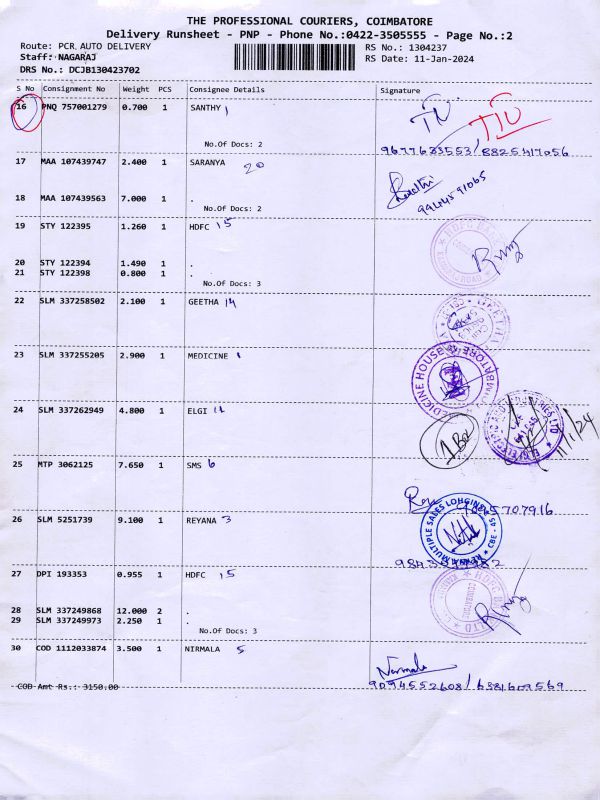 THE PROFESSIONAL COURIERS, COIMBATORE
Delivery Runsheet - PNP - Phone No.:0422-3505555 - Page No.:2
Route: PCR AUTO DELIVERY RS No.: 1304237
Staff: NAGARAJ RS Date: 11-Jan-2024
DRS No.: DCJB130423702
S No Consignment No Weight PCS Consignee Details Signature
16 PNQ 757001279 0.700 1 SANTHY 1
No.Of Docs: 2
9677633553/8825417056
17 MAA 107439747 2.400 1 SARANYA 20
18 MAA 107439563 7.000 1 .
No.Of Docs: 2
9944591065
19 STY 122395 1.260 1 HDFC 15
20 STY 122394 1.490 1 .
21 STY 122398 0.800 1 .
No.Of Docs: 3
22 SLM 337258502 2.100 1 GEETHA 14
23 SLM 337255205 2.900 1 MEDICINE 1
MEDICINE HOUSE
24 SLM 337262949 4.800 1 ELGI 11
1 Box
11/1/24
25 MTP 3062125 7.650 1 SMS 6
26 SLM 5251739 9.100 1 REYANA 3
MULTIPLE SALES
27 DPI 193353 0.955 1 HDFC 15
28 SLM 337249868 12.000 2 .
29 SLM 337249973 2.250 1 .
No.Of Docs: 3
30 COD 1112033874 3.500 1 NIRMALA 5
Nirmala
9094552608/6381609569
COD Amt Rs.: 3150.00